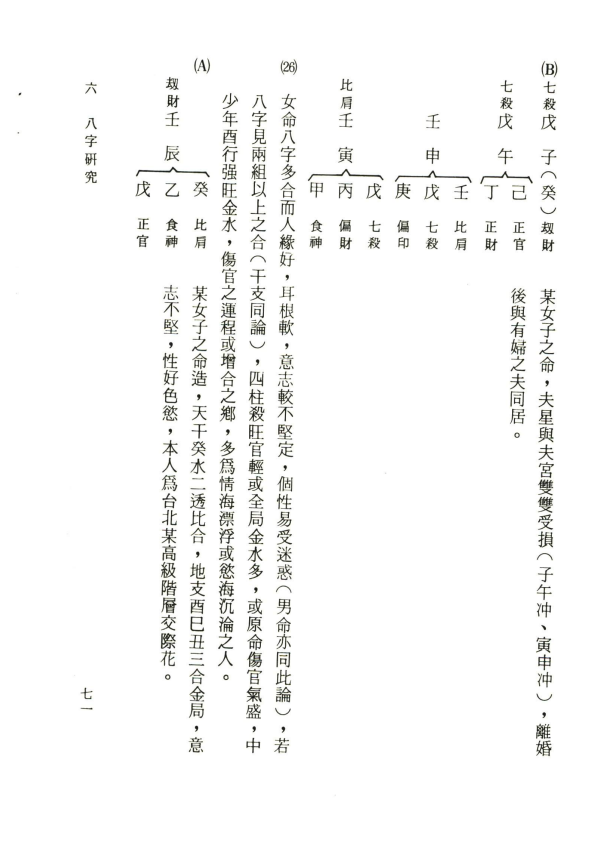 (B) 七殺 戊 子(癸)刼財 某女子之命,夫星與夫宮雙雙受損(子午冲、寅申冲),離婚
己 正官 後與有婦之夫同居。
七殺 戊 午
丁 正財
壬 比肩
壬 申 戊 七殺
庚 偏印
戊 七殺
比肩 壬 寅 丙 偏財
甲 食神
(26) 女命八字多合而人緣好,耳根軟,意志較不堅定,個性易受迷惑(男命亦同此論),若
八字見兩組以上之合(干支同論),四柱殺旺官輕或全局金水多,或原命傷官氣盛,中
少年酉行强旺金水,傷官之運程或增合之鄉,多爲情海漂浮或慾海沉淪之人。
(A) 癸 比肩 某女子之命造,天干癸水二透比合,地支酉巳丑三合金局,意
刼財 壬 辰 乙 食神 志不堅,性好色慾,本人爲台北某高級階層交際花。
戊 正官
六 八字研究
七一